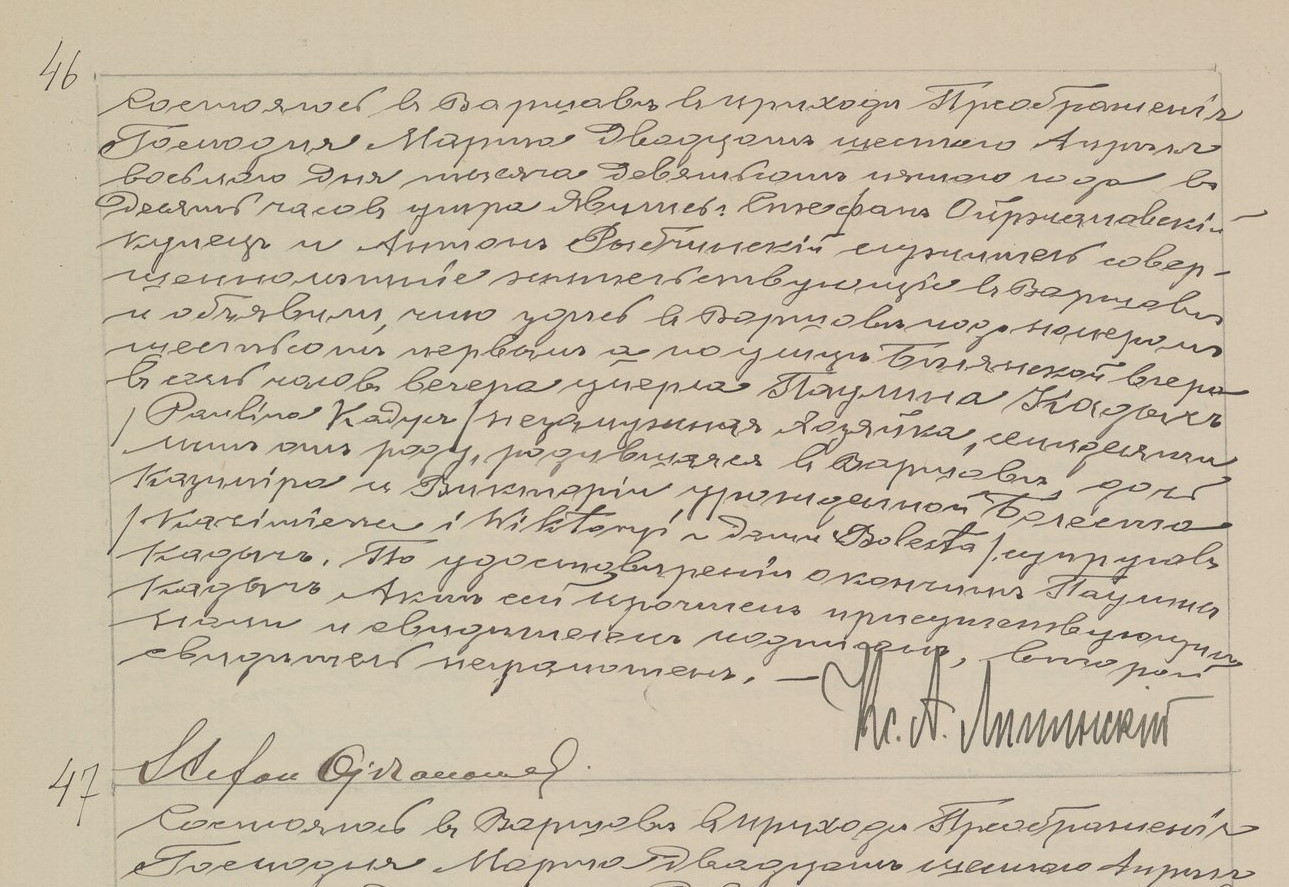 46
Состоялось въ Варшавѣ въ приходѣ Преображенія
Господня Марта двадцать шестаго Апрѣля
восьмаго дня тысяча девятьсотъ пятаго года въ
десять часовъ утра. Явились: Стефанъ
купецъ и Антонъ Рыбчинскій служитель совер-
шеннолѣтніе жительствующіе въ Варшавѣ
и объявили, что здѣсь въ Варшавѣ подъ номеромъ
шестьсотъ первымъ а по улицѣ Белянской вчера
въ семь часовъ вечера умерла Паулина Кадыхъ
/Paulina Kadych/ незамужная хозяйка, семидесяти
лѣтъ отъ роду, родившаяся въ Варшавѣ, дочь
Казимира и Викторіи урожденной Болеста
/Kazimierza i Wiktoryi z domu Bolesta/ супруговъ
Кадыхъ. По удостовѣреніи о кончинѣ Паулины
Кадыхъ Актъ сей прочтенъ присутствующимъ
нами и свидѣтелемъ подписанъ, второй
свидѣтель неграмотенъ. —
Кс. А.
Stefan
47
Состоялось въ Варшавѣ въ приходѣ Преображенія
Господня Марта двадцать шестаго Апрѣля